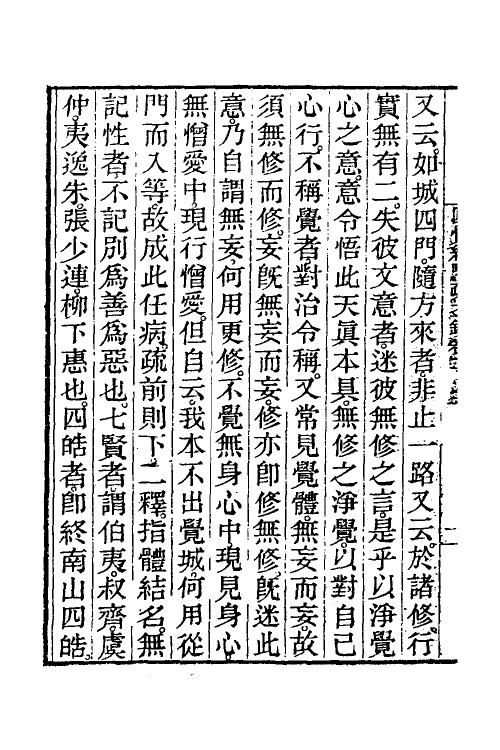 又云。如城四門。隨方來者。非止一路又云。於諸修。行
實無有二。失彼文意者。迷彼無修之言。是乎以淨覺
心之意。意令悟此天眞本具。無修之淨覺。以對自己
心行。不稱覺者。對治令稱。又常見覺體。無妄而妄。故
須無修而修。妄旣無妄而妄。修亦卽修無修。旣迷此
意。乃自謂無妄。何用更修。不覺無身心中。現見身心。
無憎愛中。現行憎愛。但自云。我本不出覺城。何用從
門而入等。故成此任病。疏前則下。二釋。指體結名。無
記性者。不記別爲善爲惡也。七賢者。謂伯夷。叔齊。虞
仲。夷逸。朱。張。少連。柳下惠也。四皓者。卽終南山四皓。